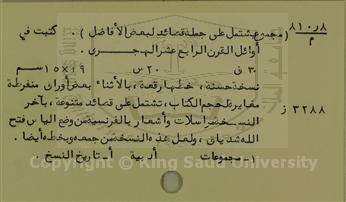 ٨١٠٫٨
م
( مجموع يشتمل على جملة قصائد لبعض الأفاضل ) . كتبت في
أوائل القرن الرابع عشر الهجـــرى .
٣٠ ق ٢٠ س ١٩×١٥ ســم
نسخة حسنة ، خطها رقعة ، بالأثناء بعض أوراق منفرطة
٣٢٨٨ ز
مغايرة لحجم الكتاب ، تشتمل على قصائد متنوعة ، بآخر
النسخة مراسلات وأشعار بالفرنسية من وضع الياس فتح
الله شدياق ، ولعل هذه النسخة من جمعه وبخطه أيضا .
١- مجموعات أدبية أ- تاريخ النسخ .
Copyright © King Saud University